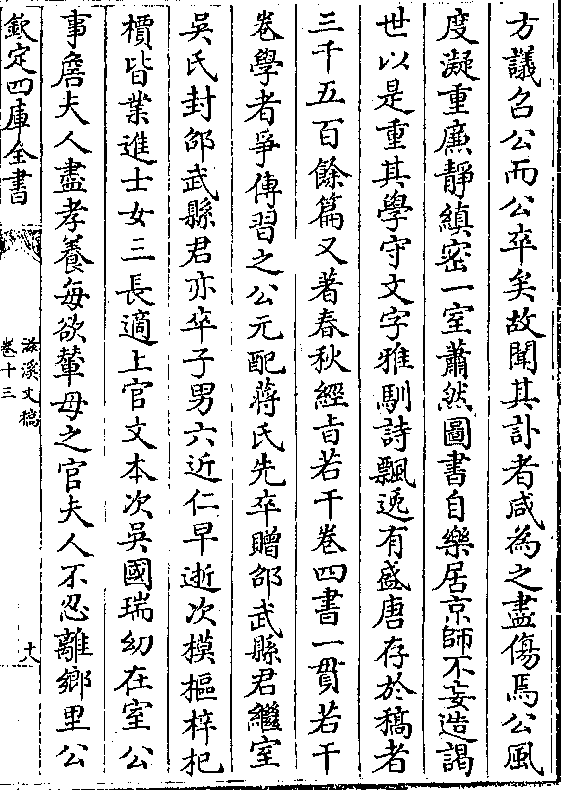 方議召公而公卒矣故聞其訃者咸為之盡傷焉公風
度凝重廉靜縝密一室蕭然圖書自樂居京師不妄造謁
世以是重其學守文字雅馴詩飄逸有盛唐存於稿者
三千五百餘篇又著春秋經旨若干卷四書一貫若干
卷學者爭傳習之公元配蔣氏先卒贈邵武縣君繼室
吳氏封邵武縣君亦卒子男六近仁早逝次模樞梓杞
檟皆業進士女三長適上官文本次吳國瑞幼在室公
事詹夫人盡孝養每欲輦母之官夫人不忍離鄉里公
欽定四庫全書
滋溪文稿
卷十三
十八